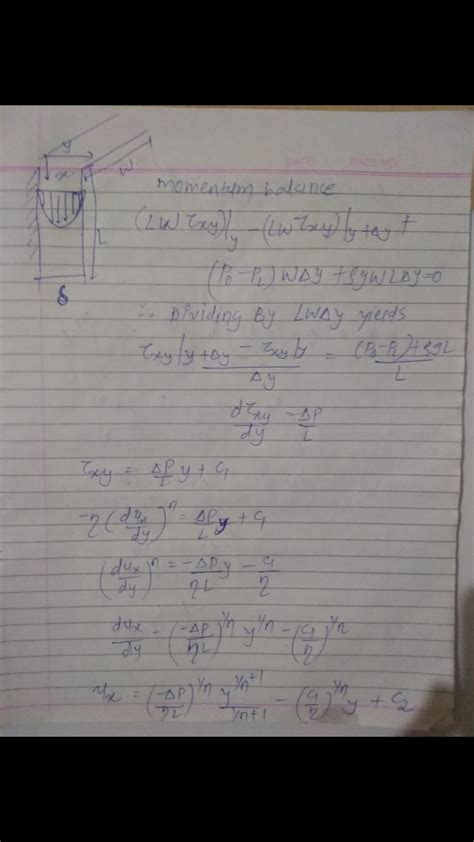 y
DATE PAGE NO.
x
W
L
δ
momentum balance
(LWτxy)|y - (LWτxy)|y+Δy +
(P0-PL) WΔy + ρgWLΔy=0
∴ Dividing By LWΔy yields
τxy|y+Δy - τxy|y / Δy = (P0-PL)+ρgL / L
dτxy/dy = ΔP/L
τxy = ΔP/L y + C1
-η(dux/dy)^n = ΔP/L y + C1
(dux/dy)^n = -ΔP/ηL y - C1/η
dux/dy - (-ΔP/ηL)^1/n y^1/n - (C1/η)^1/n
ux = (-ΔP/ηL)^1/n y^1/n+1 / 1/n+1 - (C1/η)^1/n y + C2